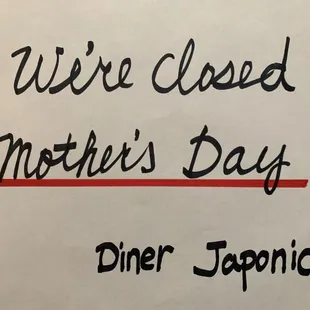 We're closed
Mother's Day
Diner Japonic